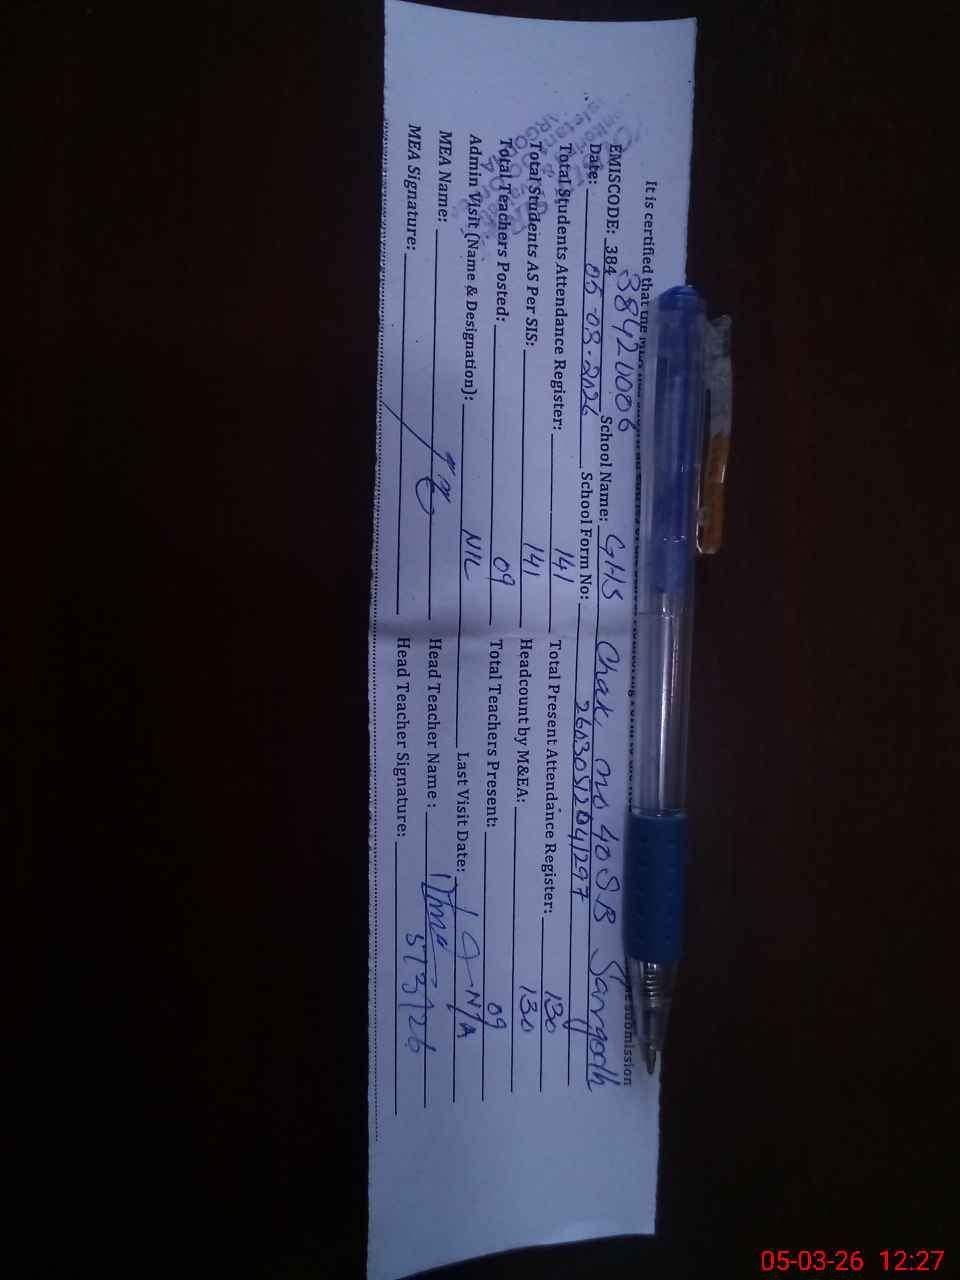 It is certified that the
submission
EMISCODE: 384 38420006 School Name: GHS Chak no 40 SB Sargodh
Date: 05-03-2026 School Form No: 26030512041297
Total Students Attendance Register: 141 Total Present Attendance Register: 130
Total Students AS Per SIS: 141 Headcount by M&EA: 130
Total Teachers Posted: 09 Total Teachers Present: 09
Admin Visit (Name & Designation): NIL Last Visit Date: N/A
MEA Name: Head Teacher Name :
MEA Signature: Head Teacher Signature: 5/3/26
05-03-26 12:27